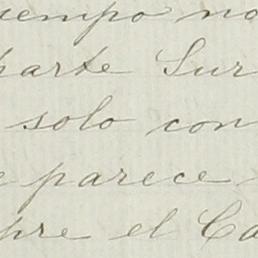 tiempo no
parte Sur
solo con
parece
el Ca